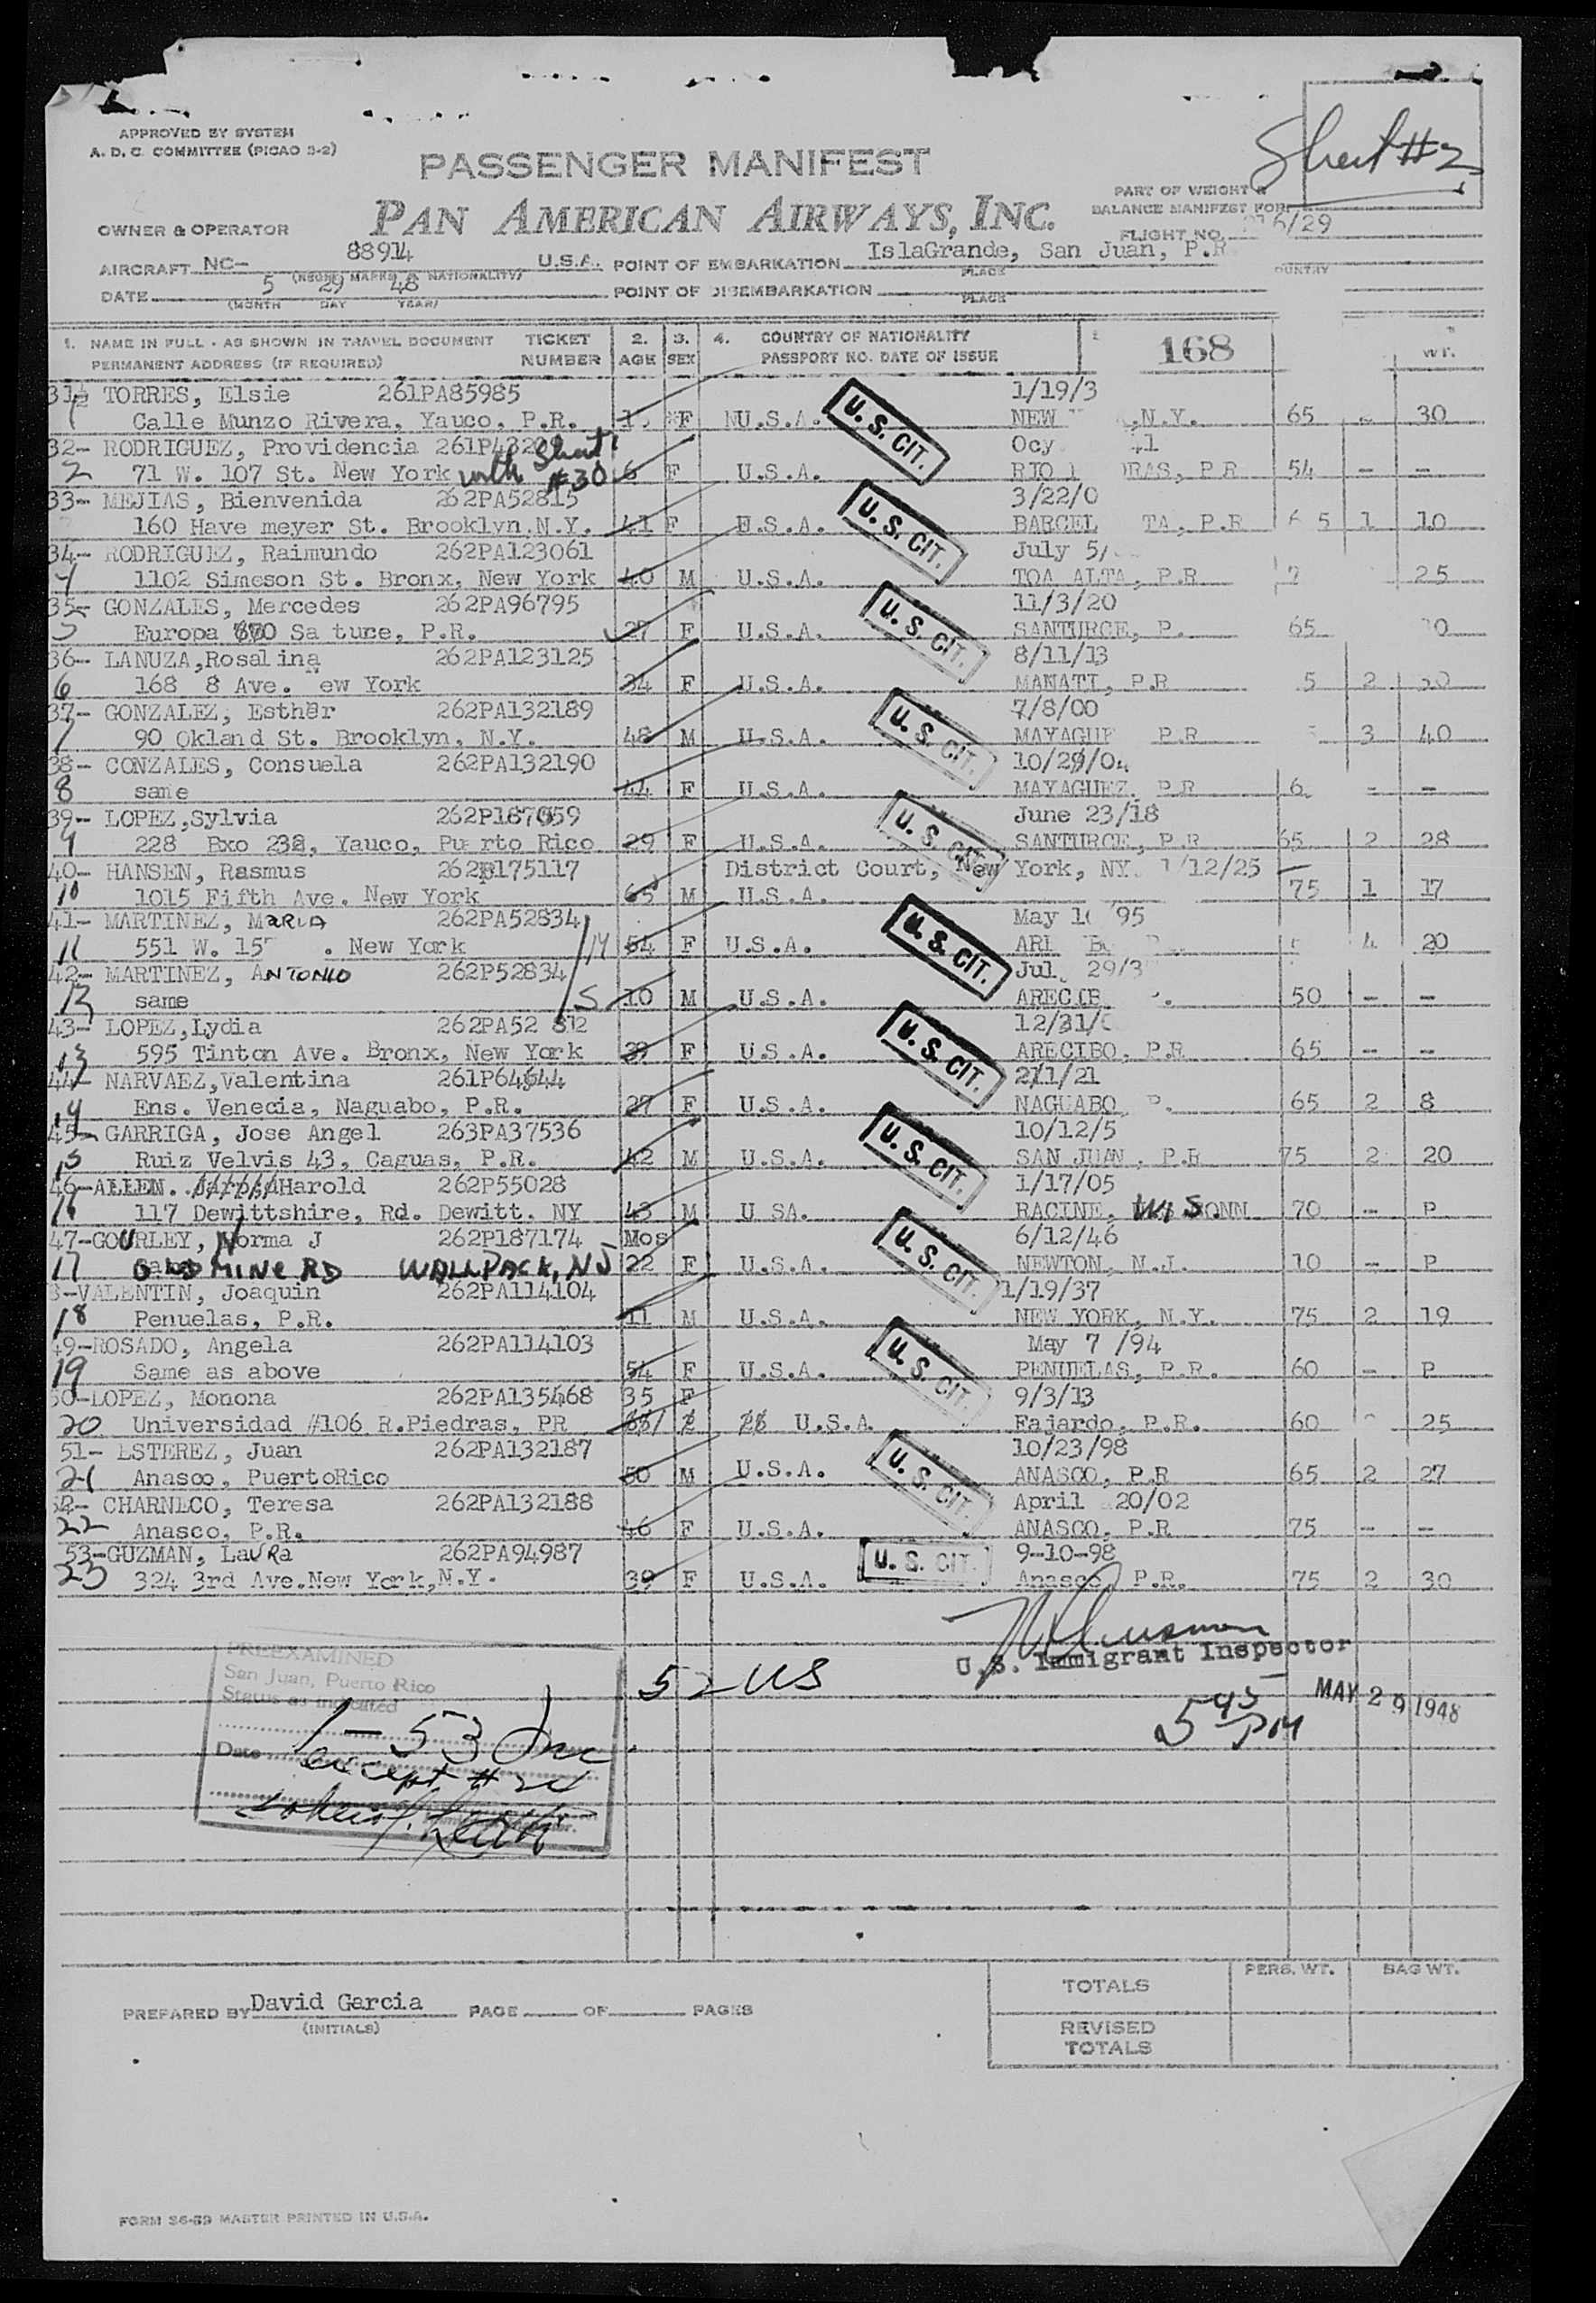 APPROVED BY SYSTEM
A. D. C. COMMITTEE (PICAO 3-2)
PASSENGER MANIFEST
Sheet #2
PART OF WEIGHT &
BALANCE MANIFEST FOR
OWNER & OPERATOR
PAN AMERICAN AIRWAYS, INC.
FLIGHT NO. 6/29
AIRCRAFT NC- 88914 U.S.A. POINT OF EMBARKATION IslaGrande, San Juan, P.R
(REGNS MARKS & NATIONALITY) PLACE
DATE 5 29 48 POINT OF DISEMBARKATION
(MONTH DAY YEAR) PLACE
1. NAME IN FULL - AS SHOWN IN TRAVEL DOCUMENT TICKET 2. 3. 4. COUNTRY OF NATIONALITY 168
PERMANENT ADDRESS (IF REQUIRED) NUMBER AGE SEX PASSPORT NO. DATE OF ISSUE WT.
31- TORRES, Elsie 261PA85985 1/19/3
1 Calle Munzo Rivera, Yauco, P.R. F U.S.A. U.S. CIT. NEW N.Y. 65 - 30
32- RODRIGUEZ, Providencia with Sheet 1 #30
2 71 W. 107 St. New York 6 F U.S.A. P.R 54 - -
33- MEJIAS, Bienvenida 262PA52815 3/22/0
160 Have meyer St. Brooklyn.N.Y. 41 F E.S.A. U.S. CIT. BARCEL TA, P.R 5 1 10
34- RODRIGUEZ, Raimundo 262PA123061 July 5/
4 1102 Simeson St. Bronx, New York 40 M U.S.A. TOA ALTA, P.R 7 25
35- GONZALES, Mercedes 262PA96795 11/3/20
5 Europa 670 Sa turce, P.R. 27 F U.S.A. U.S. CIT. SANTURCE, P. 65 0
36- LANUZA,Rosalina 262PA123125 8/11/13
6 168 8 Ave. ew York 34 F U.S.A. MANATI, P.R 5 2
37- GONZALEZ, Esther 262PA132189 7/8/00
7 90 Okland St. Brooklyn, N.Y. 48 M U.S.A. U.S. CIT. MAYAGUE P.R 3 40
38- CONZALES, Consuela 262PA132190 10/29/04
8 same 44 F U.S.A. MAYAGUEZ, P.R 6 - -
39- LOPEZ,Sylvia 262P187059 June 23/18
9 228 Bxo 232, Yauco, Pu rto Rico 29 F U.S.A. U.S. CIT. SANTURCE, P.R 65 2 28
40- HANSEN, Rasmus 262p175117 District Court, New York, NY. 1/12/25
10 1015 Fifth Ave. New York 65 M U.S.A. 75 1 17
41- MARTINEZ, MaRIA 262PA52834 May 1 95
11 551 W. 15 . New York 54 F U.S.A. U.S. CIT. 4 20
42- MARTINEZ, ANTONIO 262P52834 Jul 29/3
12 same 10 M U.S.A. ARECIB 50 - -
43- LOPEZ,Lydia 262PA52 812 12/31/
13 595 Tinton Ave. Bronx, New York 39 F U.S.A. U.S. CIT. ARECIBO, P.R 65 -- --
44- NARVAEZ,Valentina 261P64644 2/1/21
14 Ens. Venecia, Naguabo, P.R. 27 F U.S.A. NAGUABO P. 65 2 8
45- GARRIGA, Jose Angel 263PA37536 10/12/5
15 Ruiz Velvis 43, Caguas, P.R. 42 M U.S.A. U.S. CIT. SAN JUAN, P.R 75 2 20
46-ALLEN. Harold 262P55028 1/17/05
16 117 Dewittshire, Rd. Dewitt. NY 43 M U SA. RACINE, WIS 70 - P
47-GOURLEY, Norma J 262P187174 Mos 6/12/46
17 OLD MINE RD WALLPACK, NJ 22 F U.S.A. U.S. CIT. NEWTON, N.J. 10 - P
8-VALENTIN, Joaquin 262PA114104 1/19/37
18 Penuelas, P.R. 11 M U.S.A. NEW YORK, N.Y. 75 2 19
49-ROSADO, Angela 262PA114103 May 7 /94
19 Same as above 54 F U.S.A. U.S. CIT. PENUELAS, P.R. 60 - P
50-LOPEZ, Monona 262PA135468 35 F 9/3/13
20 Universidad #106 R.Piedras, PR U.S.A. Fajardo, P.R. 60 25
51- ESTEREZ, Juan 262PA132187 10/23/98
21 Anasco, PuertoRico 50 M U.S.A. U.S. CIT. ANASCO, P.R 65 2 27
52- CHARNECO, Teresa 262PA132188 April 20/02
22 Anasco, P.R. 46 F U.S.A. ANASCO, P.R 75 -- --
53-GUZMAN, LaURa 262PA94987 9-10-98
23 324 3rd Ave.New York,N.Y. 39 F U.S.A. U.S. CIT. Anasco, P.R. 75 2 30
U.S. Immigrant Inspector
PREEXAMINED
San Juan, Puerto Rico
Status as indicated
52 US
5 45 PM MAY 29 1948
1-53 Inc
Date
except #
PREPARED BY David Garcia PAGE OF PAGES
(INITIALS)
TOTALS PERS. WT. BAG WT.
REVISED
TOTALS
FORM 36-59 MASTER PRINTED IN U.S.A.